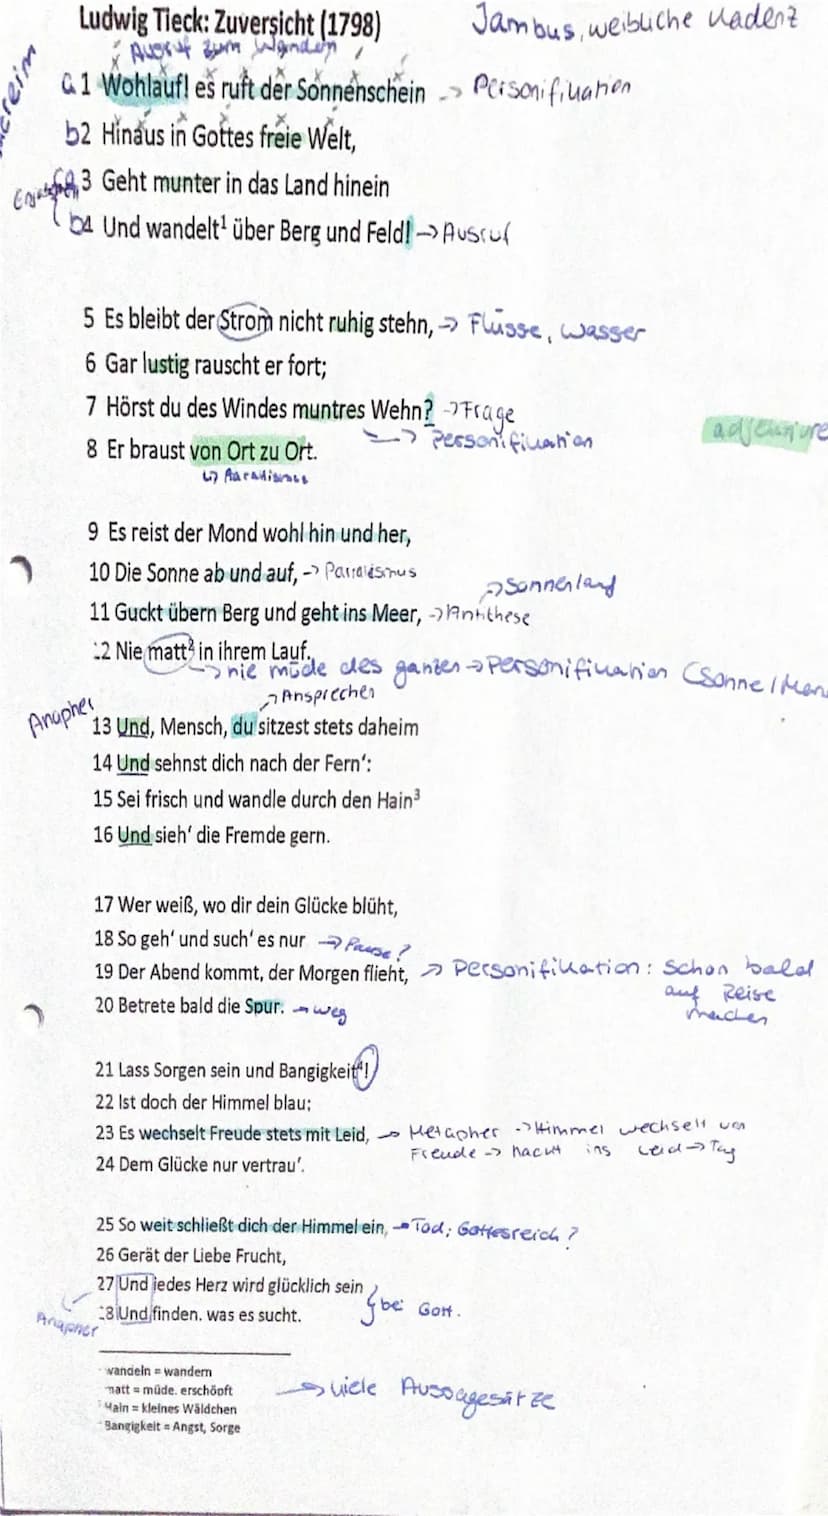 Ludwig Tieck: Zuversicht (1798) Jambus, weibliche Kadenz
Ausruf zum Wandern
a 1 Wohlauf! es ruft der Sonnenschein -> Personifikation
b2 Hinaus in Gottes freie Welt,
a 3 Geht munter in das Land hinein
b4 Und wandelt¹ über Berg und Feld! -> Ausruf
5 Es bleibt der Strom nicht ruhig stehn, -> Flüsse, Wasser
6 Gar lustig rauscht er fort;
7 Hörst du des Windes muntres Wehn? -> Frage
-> Personifikation
adjektive
8 Er braust von Ort zu Ort.
9 Es reist der Mond wohl hin und her,
10 Die Sonne ab und auf, -> Parralesmus
-> Sonnenlauf
11 Guckt übern Berg und geht ins Meer, -> Antithese
12 Nie matt² in ihrem Lauf.
-> nie müde des ganzen -> Personifikation (Sonne/Mon
-> Ansprechen
Anapher
13 Und, Mensch, du sitzest stets daheim
14 Und sehnst dich nach der Fern‘:
15 Sei frisch und wandle durch den Hain³
16 Und sieh‘ die Fremde gern.
17 Wer weiß, wo dir dein Glücke blüht,
18 So geh‘ und such‘ es nur -> Pause?
19 Der Abend kommt, der Morgen flieht, -> Personifikation: Schon bald
auf Reise
machen
20 Betrete bald die Spur. -> Weg
21 Lass Sorgen sein und Bangigkeit⁴!
22 Ist doch der Himmel blau;
23 Es wechselt Freude stets mit Leid, -> Metapher -> Himmel wechselt von
Freude -> nacht ins Leid -> Tag
24 Dem Glücke nur vertrau‘.
25 So weit schließt dich der Himmel ein, -> Tod; Gottesreich?
26 Gerät der Liebe Frucht,
27 Und jedes Herz wird glücklich sein
bei Gott.
28 Und finden. was es sucht.
Anapher
wandeln = wandern
matt = müde. erschöpft
-> viele Aussagesätze
Hain = kleines Wäldchen
Bangigkeit = Angst, Sorge